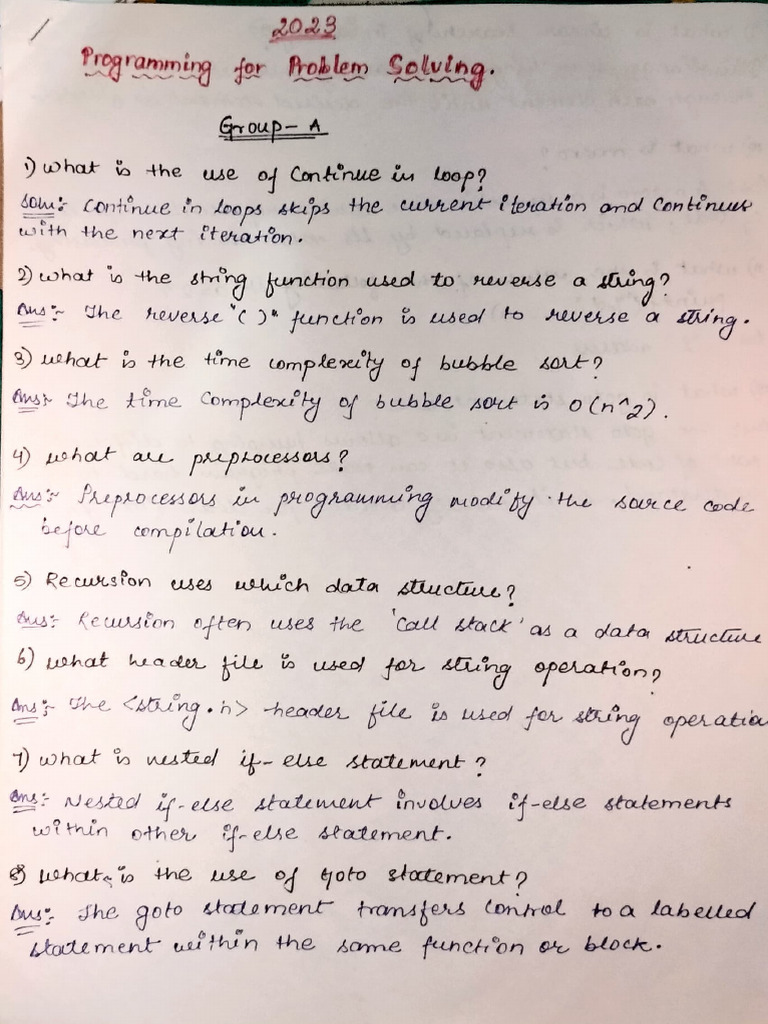 2023
Programming for Problem Solving.
Group - A
1) What is the use of Continue in loop?
Soln:- Continue in loops skips the current iteration and Continues
with the next iteration.
2) What is the string function used to reverse a string?
Ans:- The reverse "( )" function is used to reverse a string.
3) What is the time complexity of bubble sort?
Ans:- The time Complexity of bubble sort is O(n^2).
4) What are preprocessors?
Ans:- Preprocessors in programming modify the source code
before compilation.
5) Recursion uses which data structure?
Ans:- Recursion often uses the 'Call stack' as a data structure
6) What header file is used for string operation?
Ans:- The <string.h> header file is used for string operation
7) What is nested if-else statement?
Ans:- Nested if-else statement involves if-else statements
within other if-else statement.
8) What is the use of goto statement?
Ans:- The goto statement transfers Control to a labelled
statement within the same function or block.